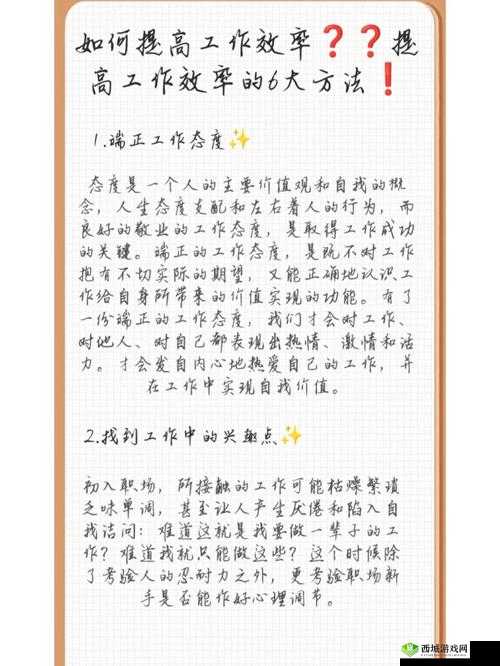 如何提高工作效率❓❓提
高工作效率的6大方法❗
1.端正工作态度✨
态度是一个人的主要价值观和自我的概
念，人生态度支配和左右着人的行为，而
良好的敬业的工作态度，是取得工作成功
的关键。端正的工作态度，是既不对工作
抱有不切实际的期望，又能正确地认识工
作给自身所带来的价值实现的功能。有了
一份端正的工作态度，我们才会对工作、
对他人、对自己都表现出热情、激情和活
力。才会发自内心地热爱自己的工作，并
在工作中实现自我价值。
2.找到工作中的兴趣点✨
初入职场，所接触的工作可能枯燥繁琐
乏味单调，甚至让人产生厌倦和陷入自
我诘问：难道这就是我要做一辈子的工
作？难道我就只能做这些？这个时候除
了考验人的忍耐力之外，更考验职场新
手是否能作好心理调节。
西城游戏网